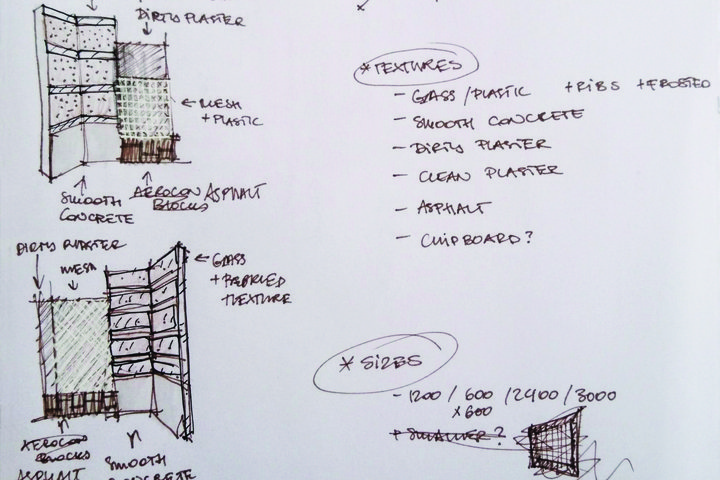 DIRTY PLASTER
← MESH
+ PLASTIC
SMOOTH
CONCRETE
AEROCON ASPHALT
BLOCKS
DIRTY PLASTER
MESH
← GLASS
+
TEXTURE
AEROCON
BLOCKS
ASPHALT
SMOOTH
CONCRETE
* TEXTURES
- GLASS / PLASTIC + RIBS + FROSTED
- SMOOTH CONCRETE
- DIRTY PLASTER
- CLEAN PLASTER
- ASPHALT
- CHIPBOARD?
* SIZES
- 1200 / 600 / 2400 / 3000
x 600
+ SMALLER?